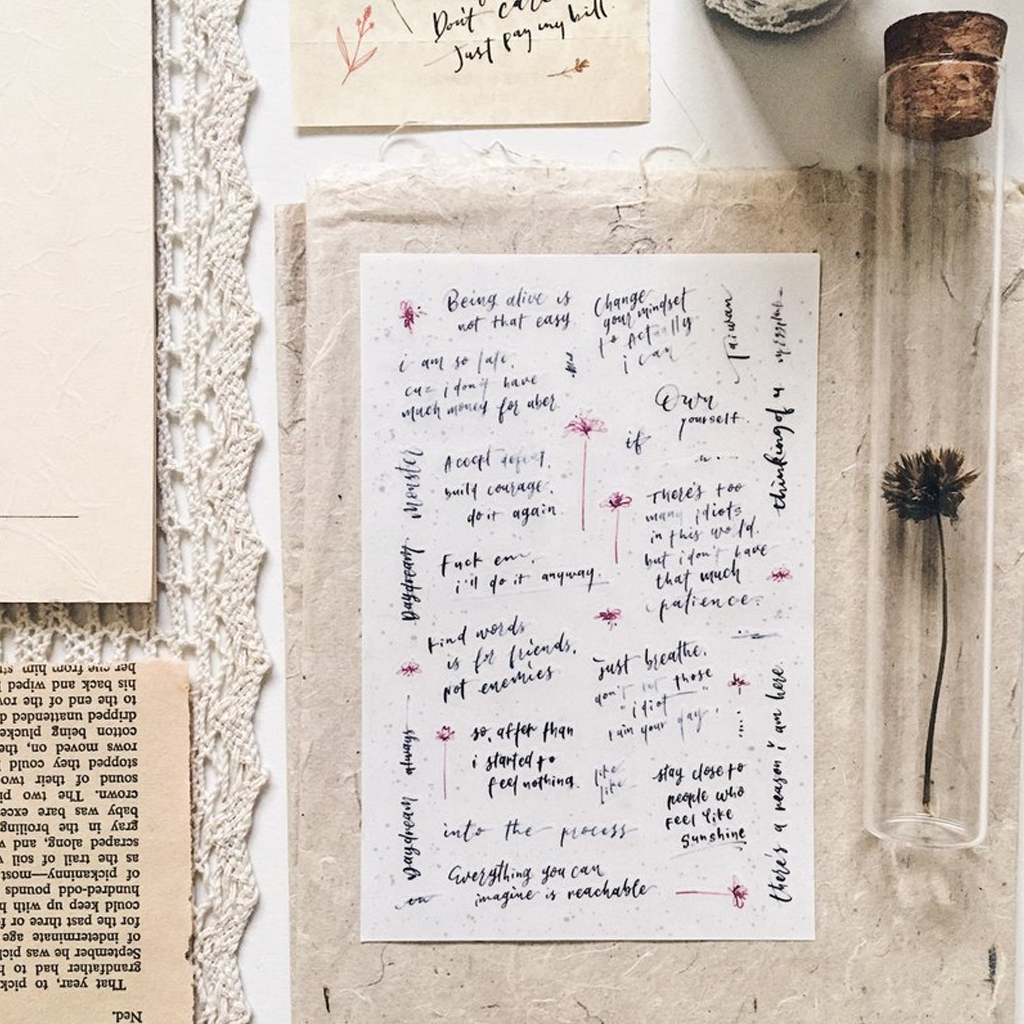 Don't care
Just pay my bill.
Being alive is
not that easy.
i am so late,
cuz i don't have
much money for uber.
Accept defeat,
build courage,
do it again.
Fuck em.
i'll do it anyway.
kind words
is for friends,
not enemies.
so, after than
i started to
feel nothing.
into the process
Everything you can
imagine is reachable
Change
your mindset
to Actually
i can
Own
yourself.
if
There's too
many idiots
in this world.
but i don't have
that much
patience.
Just breathe.
don't let those
"idiot"
ruin your day.
like
like
stay close to
people who
feel like
Sunshine
Taiwan
thinking of u
there's a reason i am here.
Monster
Daydream
always
Daydream
Ned.
That year, to pick
grandfather had to h
September he was pick
of indeterminate age
for the past three or f
could keep up with h
hundred-odd pounds
of pickaninny—most
as the trail of soil v
scraped along, and v
gray in the broiling
baby was bare exce
crown. The two pi
sound of their two
stopped they could l
rows moved on, the
cotton being plucke
dripped unattended d
to the end of the ro
his back and wiped
her cue from him st